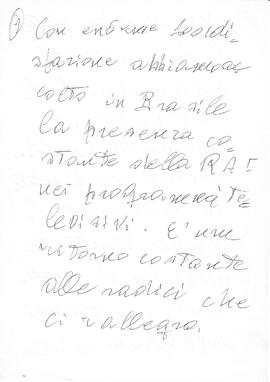 1 Con enorme soddi-
sfazione abbiamo ac
colto in Brasile
la presenza co-
stante della RAI
nei programmi te
levisivi. E' un
ritorno costante
alle radici che
ci rallegra.